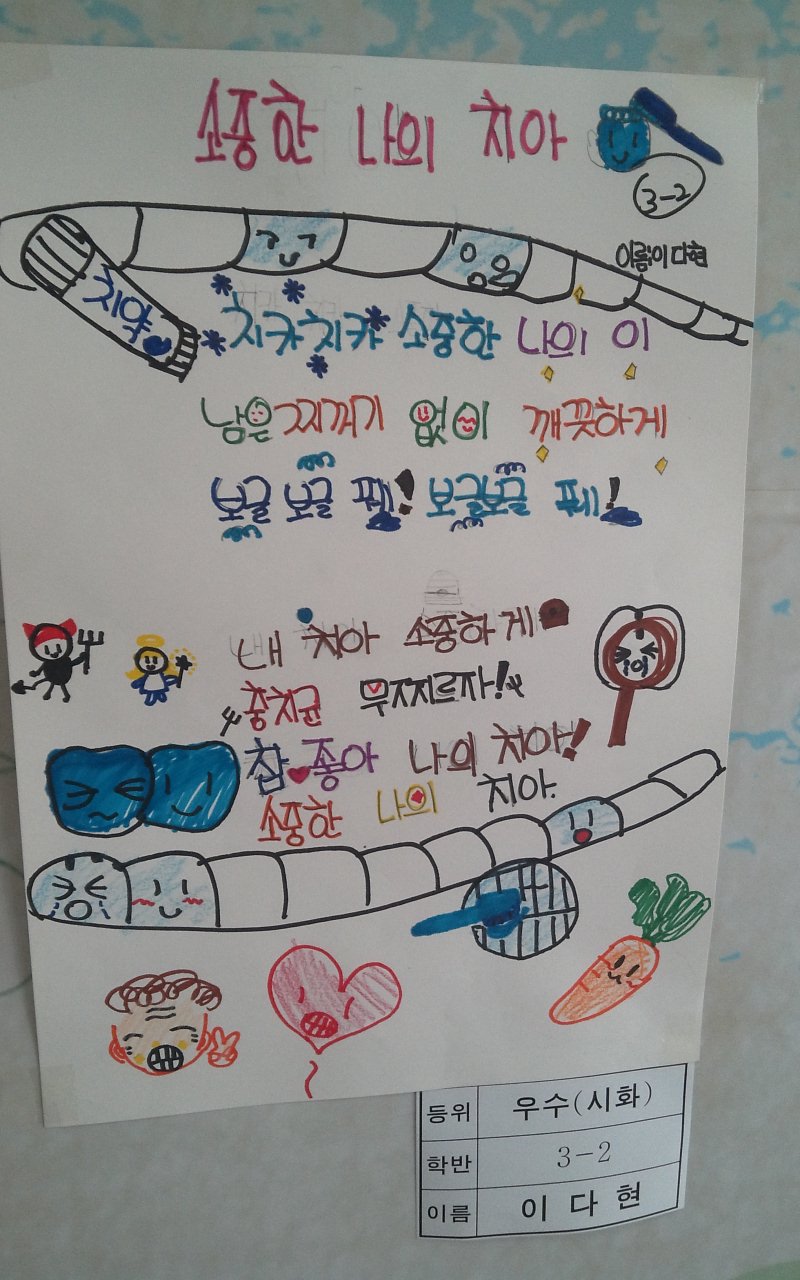 소중한 나의 치아
3-2
이름:이다현
치약
치카치카 소중한 나의 이
남은 찌꺼기 없이 깨끗하게
보글 보글 퉤! 보글보글 퉤!
내 치아 소중하게
충치균 무찌르자!
참 좋아 나의 치아!
소중한 나의 치아.
등위 우수(시화)
학반 3-2
이름 이 다 현